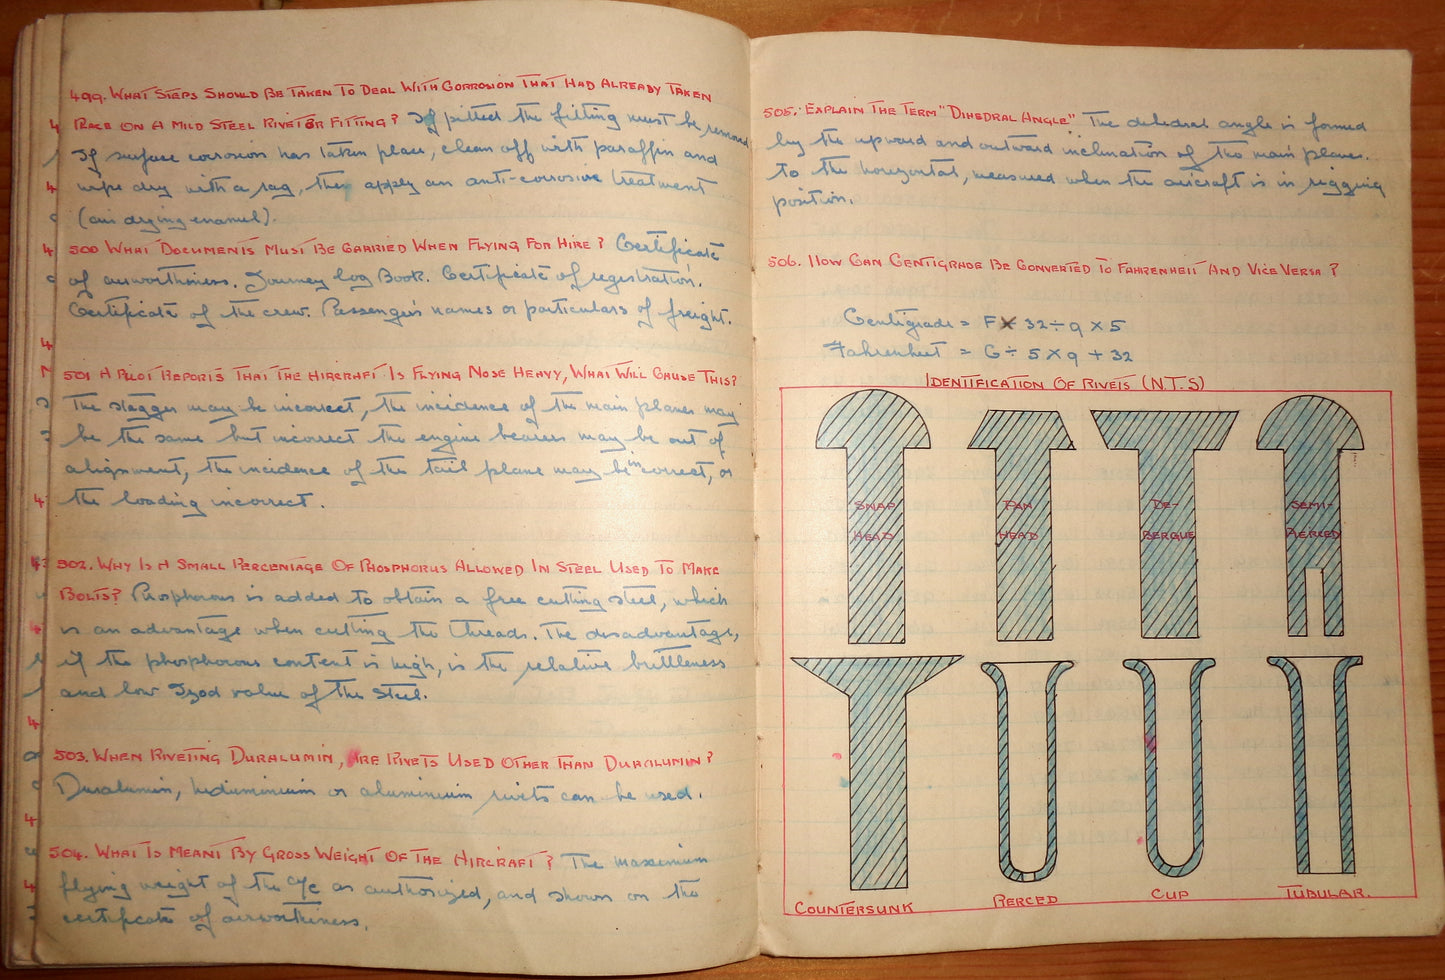 499. WHAT STEPS SHOULD BE TAKEN TO DEAL WITH CORROSION THAT HAD ALREADY TAKEN
PLACE ON A MILD STEEL RIVET OR FITTING? If pitted the fitting must be removed
If surface corrosion has taken place, clean off with paraffin and
wipe dry with a rag, then apply an anti-corrosive treatment
(air drying enamel).
500 WHAT DOCUMENTS MUST BE CARRIED WHEN FLYING FOR HIRE? Certificate
of airworthiness. Journey Log Book. Certificate of registration.
Certificate of the crew. Passengers names or particulars of freight.
501 A PILOT REPORTS THAT THE AIRCRAFT IS FLYING NOSE HEAVY, WHAT WILL CAUSE THIS?
The stagger may be incorrect, the incidence of the main planes may
be the same but incorrect the engine bearers may be out of
alignment, the incidence of the tail plane may be incorrect, or
the loading incorrect.
502. WHY IS A SMALL PERCENTAGE OF PHOSPHORUS ALLOWED IN STEEL USED TO MAKE
BOLTS? Phosphorous is added to obtain a free cutting steel, which
is an advantage when cutting the threads. The disadvantage,
if the phosphorous content is high, is the relative brittleness
and low Izod value of the steel.
503. WHEN RIVETING DURALUMIN, ARE RIVETS USED OTHER THAN DURALUMIN?
Duralumin, hiduminium or aluminium rivets can be used.
504. WHAT IS MEANT BY GROSS WEIGHT OF THE AIRCRAFT? The maximum
flying weight of the a/c as authorized, and shown on the
certificate of airworthiness.
505. EXPLAIN THE TERM "DIHEDRAL ANGLE" The dihedral angle is formed
by the upward and outward inclination of the main planes.
To the horizontal, measured when the aircraft is in rigging
position.
506. HOW CAN CENTIGRADE BE CONVERTED TO FAHRENHEIT AND VICE VERSA?
Centigrade = F - 32 ÷ 9 × 5
Fahrenheit = C ÷ 5 × 9 + 32
IDENTIFICATION OF RIVETS (N.T.S)
SNAP HEAD
PAN HEAD
DE-BERGUE
SEMI-PIERCED
COUNTERSUNK
PIERCED
CUP
TUBULAR.